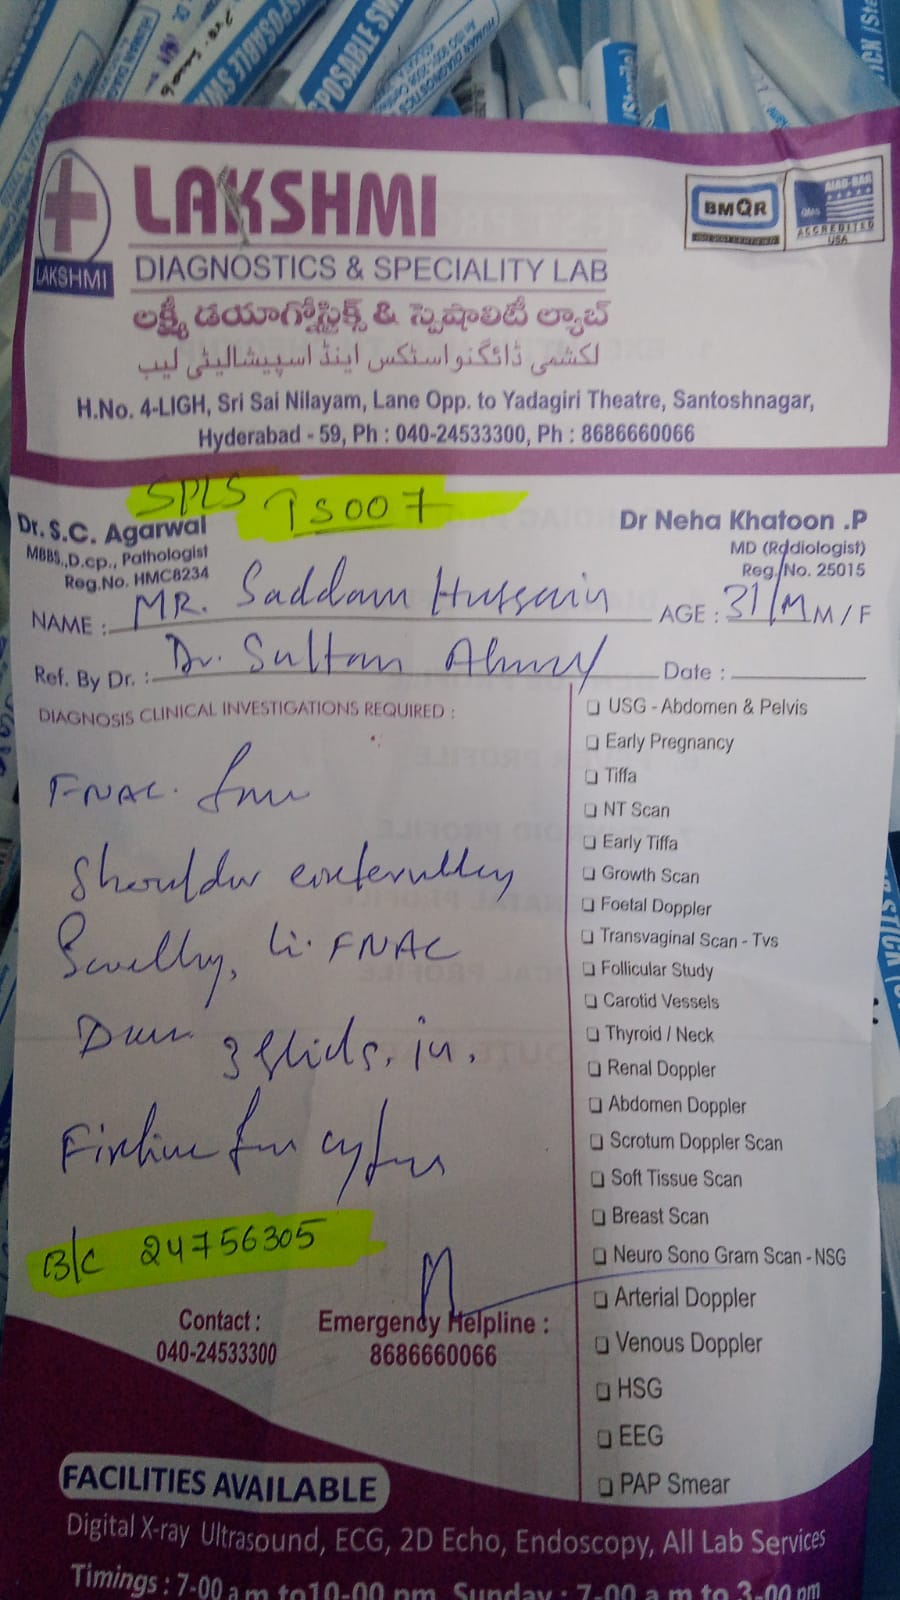 LAKSHMI
LAKSHMI
DIAGNOSTICS & SPECIALITY LAB
లక్ష్మీ డయాగ్నోస్టిక్స్ & స్పెషాలిటీ ల్యాబ్
لکشمی ڈائگنواسٹکس اینڈ اسپیشالیٹی لیب
BMQR
AIAO-BAR
QMS
ACCREDITED
USA
H.No. 4-LIGH, Sri Sai Nilayam, Lane Opp. to Yadagiri Theatre, Santoshnagar,
Hyderabad - 59, Ph : 040-24533300, Ph : 8686660066
SPLS TS007
Dr. S.C. Agarwal
MBBS.,D.cp., Pathologist
Reg.No. HMC8234
Dr Neha Khatoon .P
MD (Radiologist)
Reg. No. 25015
NAME : MR. Saddam Hussain AGE : 31/M M / F
Ref. By Dr. : Dr. Sultan Ahmed Date :
DIAGNOSIS CLINICAL INVESTIGATIONS REQUIRED :
FNAC. from
Shoulder
Swelling, FNAC
3 slids. in.
for
B/C 24756305
USG - Abdomen & Pelvis
Early Pregnancy
Tiffa
NT Scan
Early Tiffa
Growth Scan
Foetal Doppler
Transvaginal Scan - Tvs
Follicular Study
Carotid Vessels
Thyroid / Neck
Renal Doppler
Abdomen Doppler
Scrotum Doppler Scan
Soft Tissue Scan
Breast Scan
Neuro Sono Gram Scan - NSG
Arterial Doppler
Venous Doppler
HSG
EEG
PAP Smear
Contact :
040-24533300
Emergency Helpline :
8686660066
FACILITIES AVAILABLE
Digital X-ray Ultrasound, ECG, 2D Echo, Endoscopy, All Lab Services
Timings : 7-00 a m to 10-00 pm, Sunday : 7-00 a m to 3-00 pm